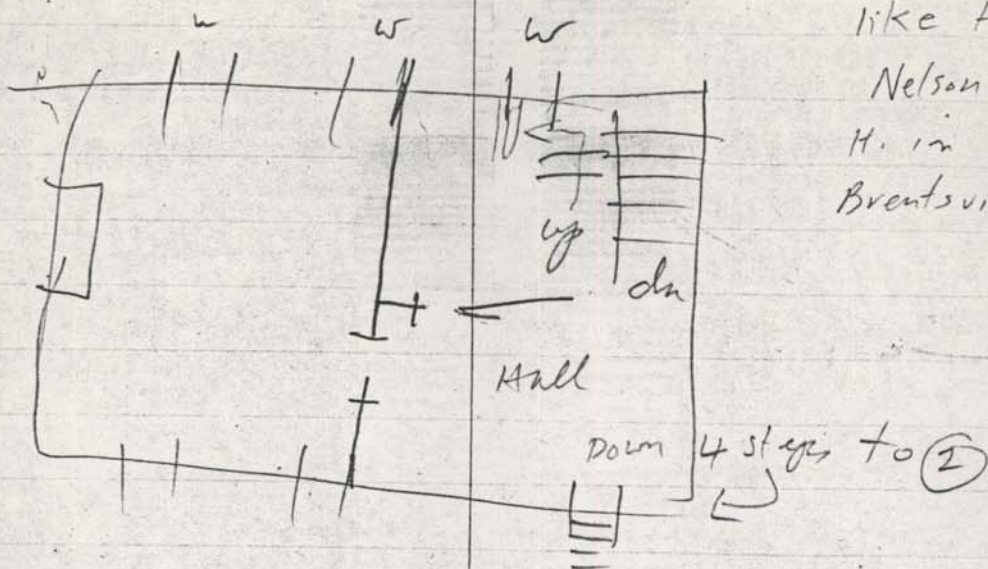 W W W
like
Nelson
H. in
up
dn
Hall
Down 4 steps to ②